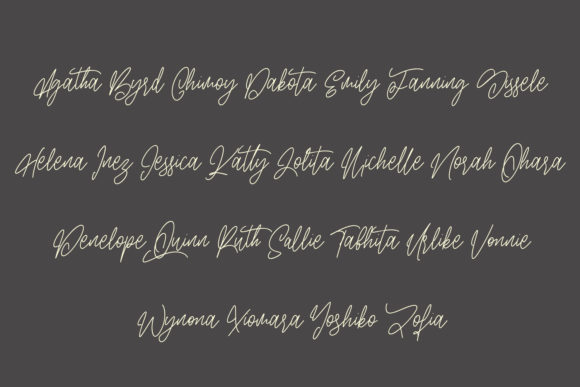 Agatha Byrd Chimoy Dakota Emily Fanning Gissele
Helena Inez Jessica Katty Lolita Michelle Norah Ohara
Penelope Quinn Ruth Sallie Tabhita Urlike Vonnie
Wynona Xiomara Yoshiko Zofia